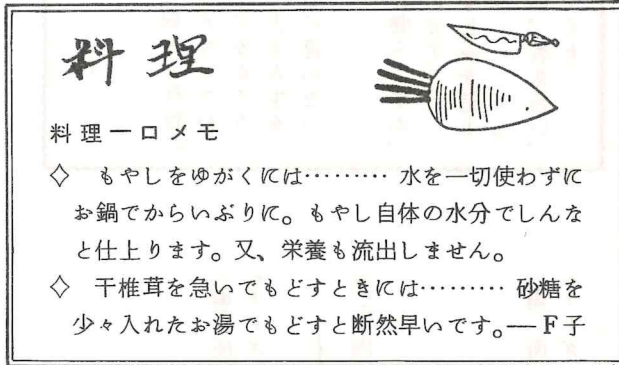 料理
料理一口メモ
◇ もやしをゆがくには……… 水を一切使わずに
お鍋でからいぶりに。もやし自体の水分でしんな
と仕上ります。又、栄養も流出しません。
◇ 干椎茸を急いでもどすときには……… 砂糖を
少々入れたお湯でもどすと断然早いです。― F子